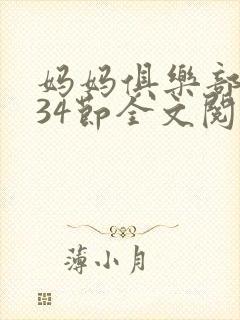 妈妈俱乐部
34節全文閱
薄小月